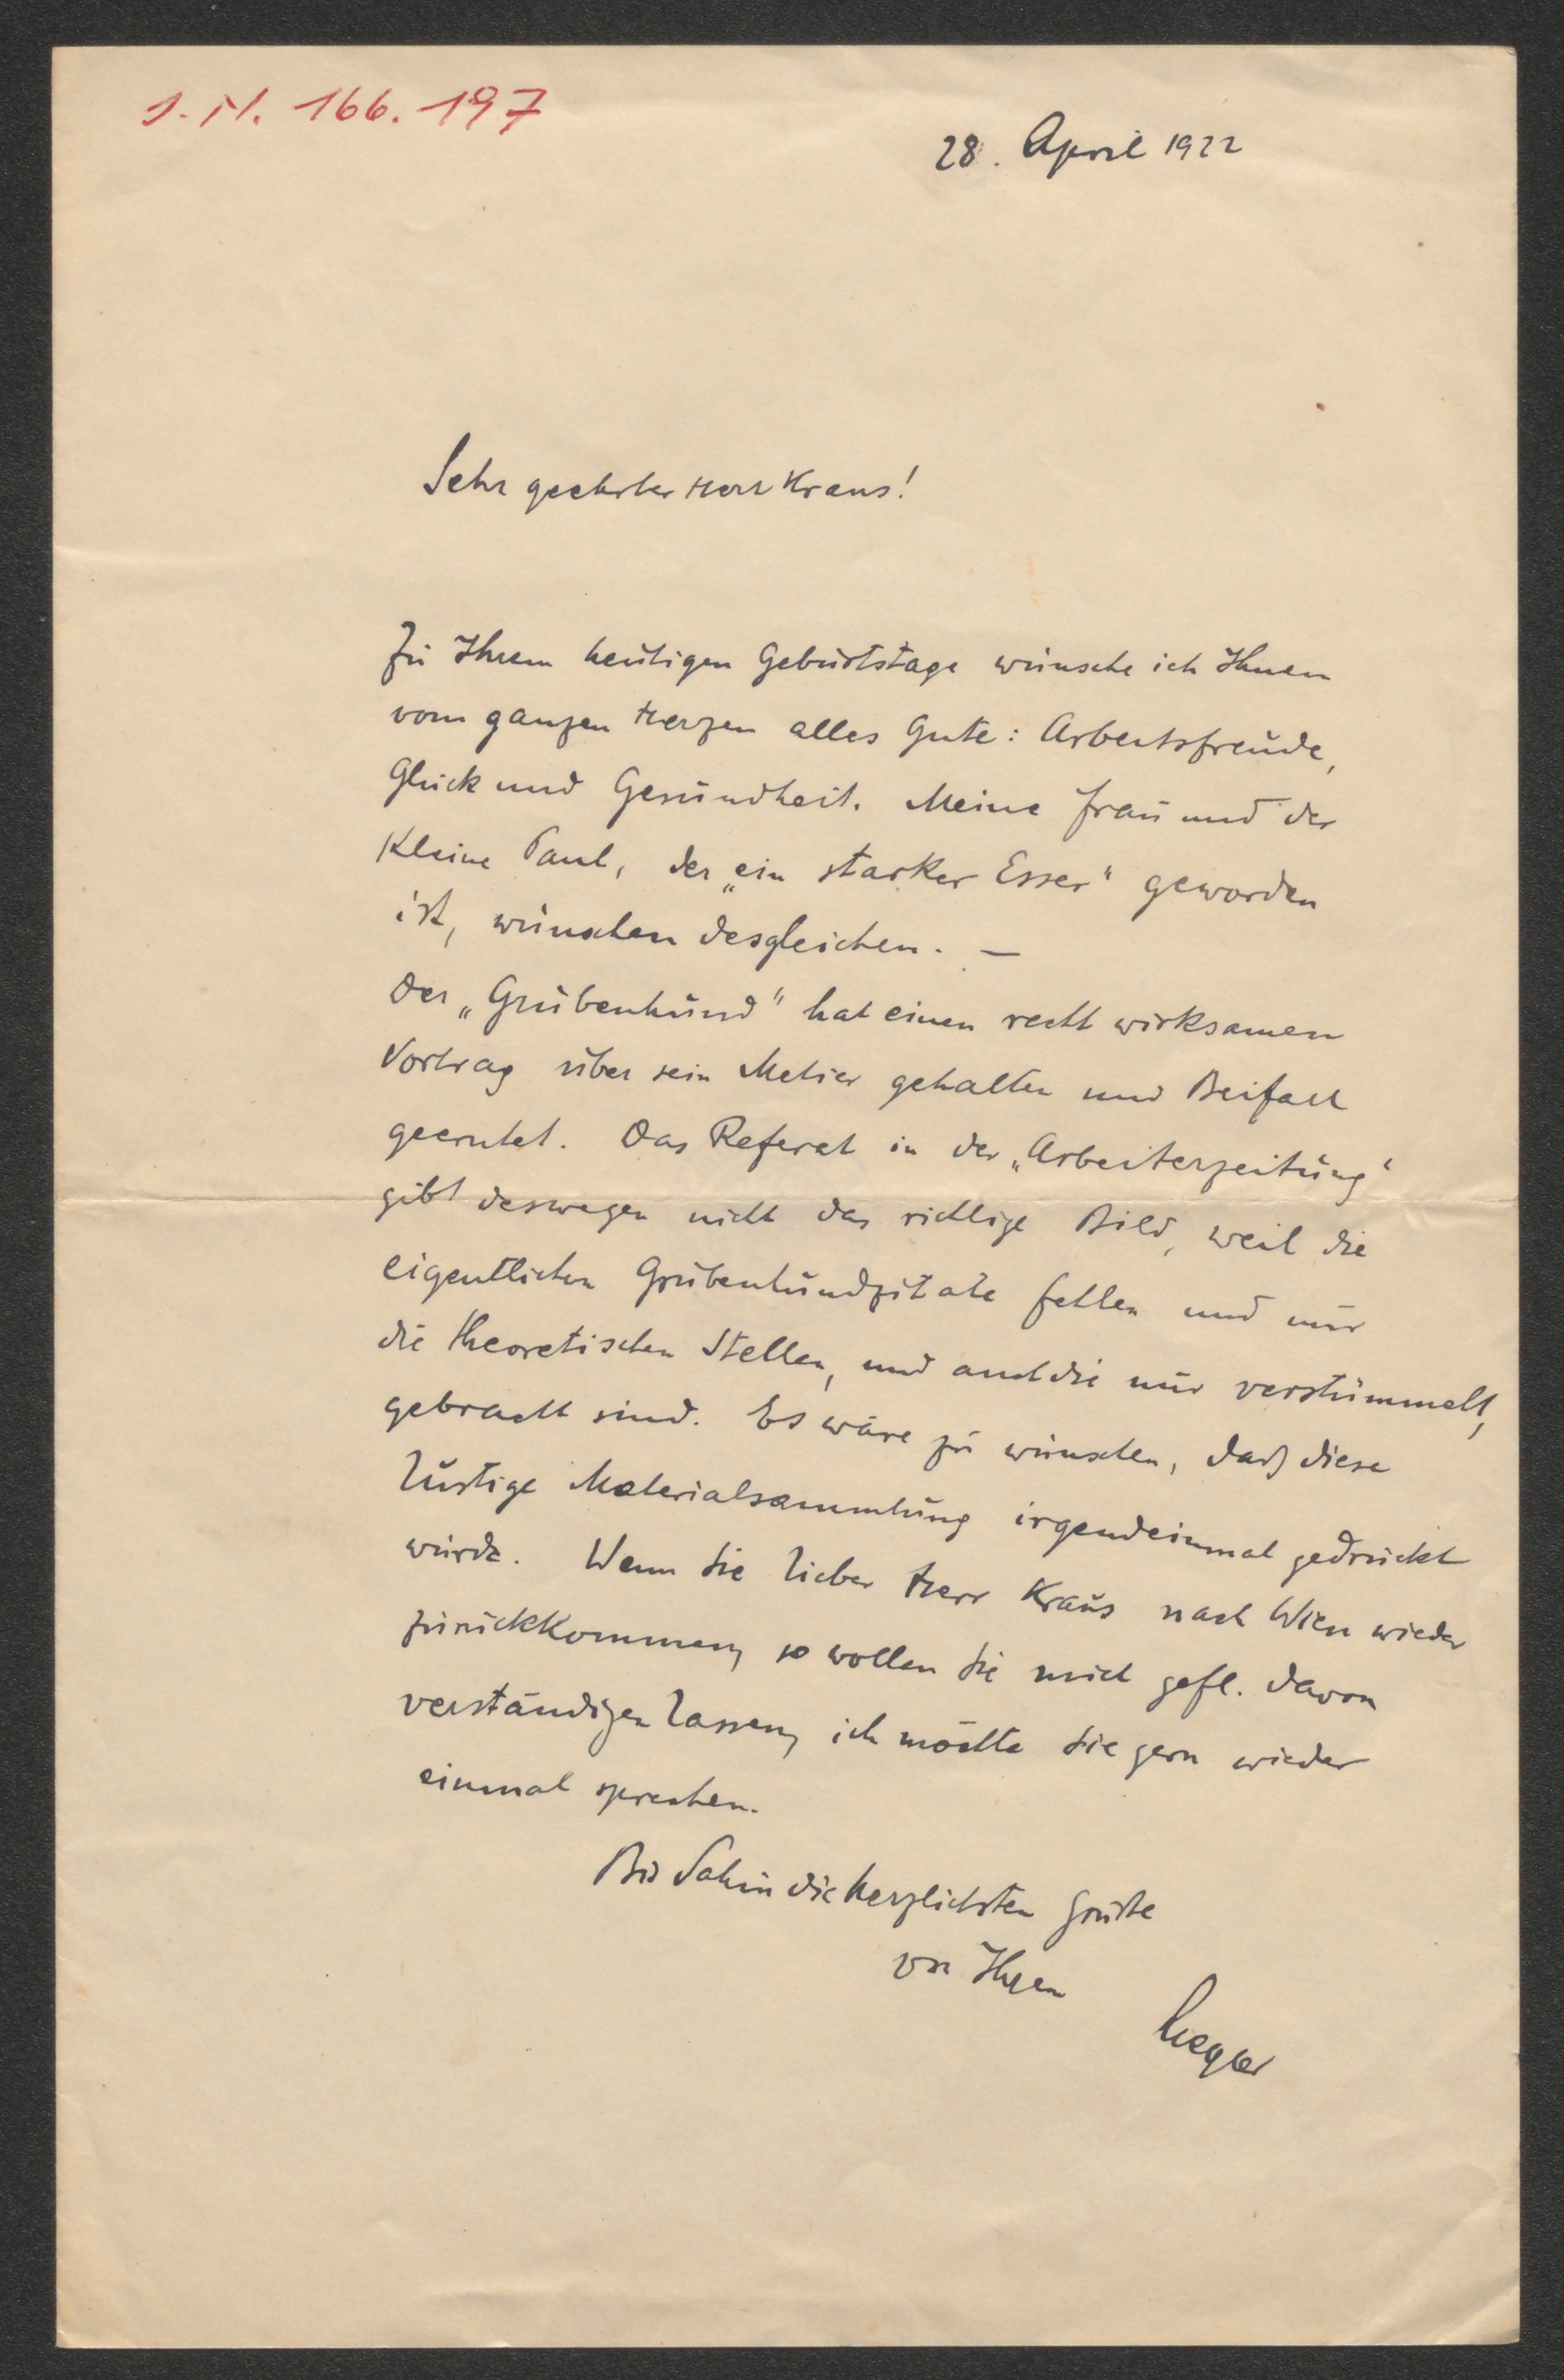 J.N. 166.197
28. April 1922
Sehr geehrter Herr Kraus!
Zu Ihrem heutigen Geburtstage wünsche ich Ihnen
vom ganzen Herzen alles Gute: Arbeitsfreude,
Glück und Gesundheit. Meine Frau und der
kleine Paul, der „ein starker Esser" geworden
ist, wünschen desgleichen. —
Der „Grubenhund" hat einen recht wirksamen
Vortrag über sein Metier gehalten und Beifall
geerntet. Das Referat in der „Arbeiterzeitung"
gibt deswegen nicht das richtige Bild, weil die
eigentlichen Grubenhundzitate fehlen und nur
die theoretischen Stellen, und auch die nur verstümmelt,
gebracht sind. Es wäre zu wünschen, daß diese
lustige Materialsammlung irgendeinmal gedruckt
würde. Wenn Sie lieber Herr Kraus nach Wien wieder
zurückkommen, so wollen Sie mich gefl. davon
verständigen lassen, ich möchte Sie gern wieder
einmal sprechen.
Bis dahin die herzlichsten Grüße
von Ihrem